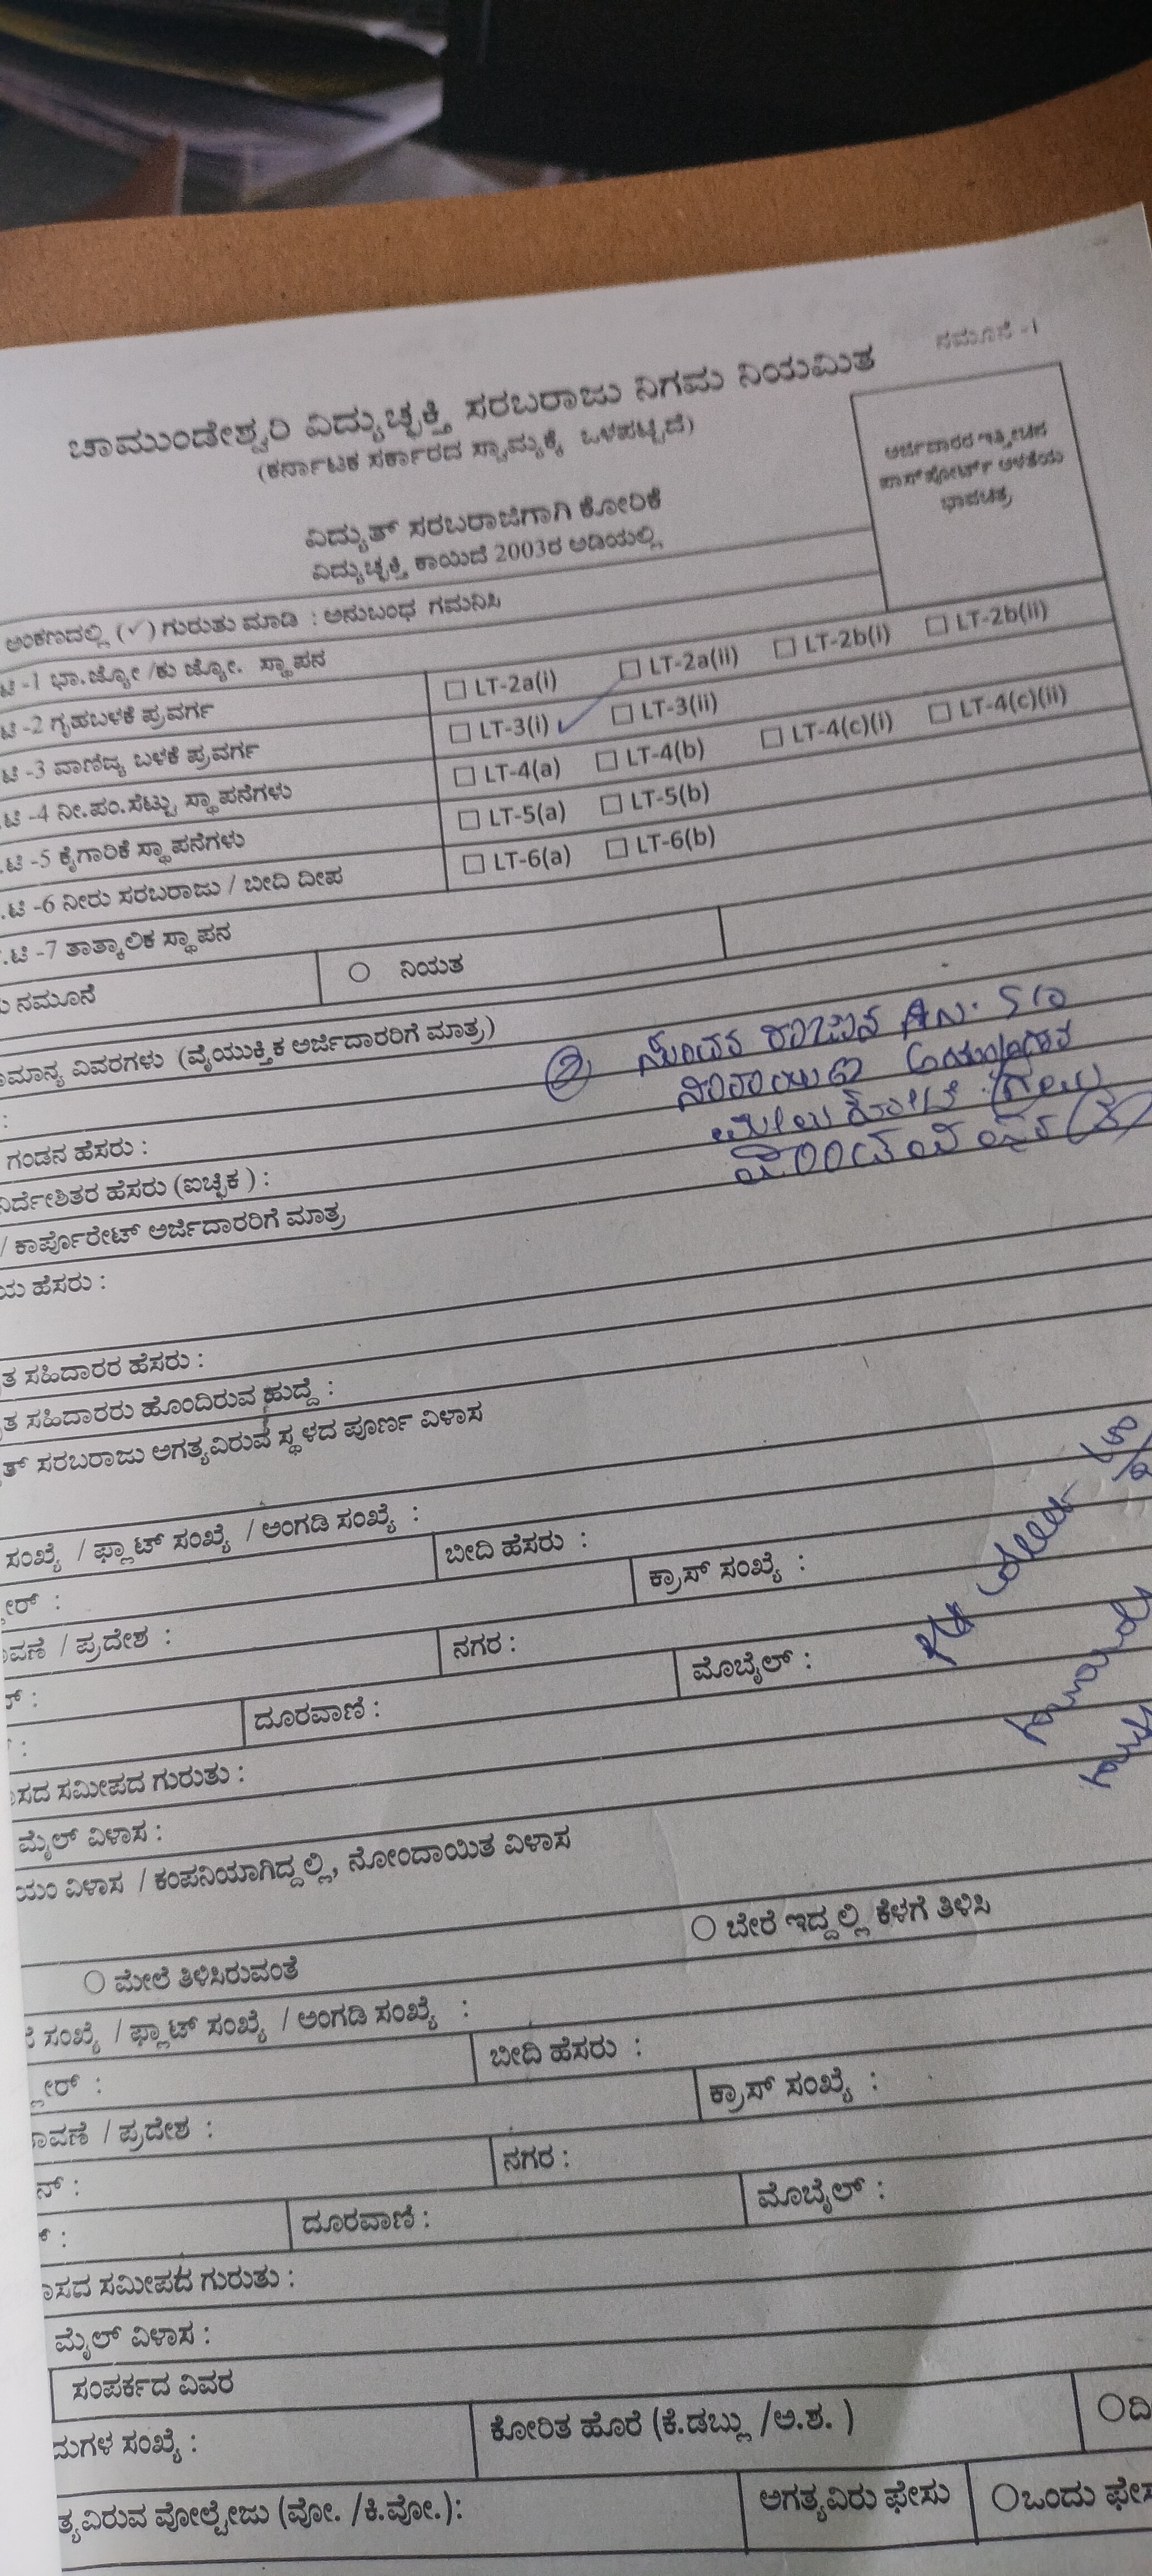 ನಮೂನೆ -1
ಚಾಮುಂಡೇಶ್ವರಿ ವಿದ್ಯುಚ್ಛಕ್ತಿ ಸರಬರಾಜು ನಿಗಮ ನಿಯಮಿತ
(ಕರ್ನಾಟಕ ಸರ್ಕಾರದ ಸ್ವಾಮ್ಯಕ್ಕೆ ಒಳಪಟ್ಟಿದೆ)
ಅರ್ಜಿದಾರರ ಇತ್ತೀಚಿನ
ಪಾಸ್‌ಪೋರ್ಟ್ ಅಳತೆಯ
ಭಾವಚಿತ್ರ
ವಿದ್ಯುತ್ ಸರಬರಾಜಿಗಾಗಿ ಕೋರಿಕೆ
ವಿದ್ಯುಚ್ಛಕ್ತಿ ಕಾಯಿದೆ 2003ರ ಅಡಿಯಲ್ಲಿ
ಅಂಕಣದಲ್ಲಿ (✓) ಗುರುತು ಮಾಡಿ : ಅನುಬಂಧ ಗಮನಿಸಿ
ಟಿ -1 ಭಾ.ಜ್ಯೋ /ಕು ಜ್ಯೋ. ಸ್ಥಾಪನ
ಟಿ -2 ಗೃಹಬಳಕೆ ಪ್ರವರ್ಗ □ LT-2a(i) □ LT-2a(ii) □ LT-2b(i) □ LT-2b(ii)
ಟಿ -3 ವಾಣಿಜ್ಯ ಬಳಕೆ ಪ್ರವರ್ಗ □ LT-3(i) ✓ □ LT-3(ii)
.ಟಿ -4 ನೀ.ಪಂ.ಸೆಟ್ಟು ಸ್ಥಾಪನೆಗಳು □ LT-4(a) □ LT-4(b) □ LT-4(c)(i) □ LT-4(c)(ii)
.ಟಿ -5 ಕೈಗಾರಿಕೆ ಸ್ಥಾಪನೆಗಳು □ LT-5(a) □ LT-5(b)
.ಟಿ -6 ನೀರು ಸರಬರಾಜು / ಬೀದಿ ದೀಪ □ LT-6(a) □ LT-6(b)
.ಟಿ -7 ತಾತ್ಕಾಲಿಕ ಸ್ಥಾಪನ
ನಮೂನೆ ○ ನಿಯತ
ಾಮಾನ್ಯ ವಿವರಗಳು (ವೈಯುಕ್ತಿಕ ಅರ್ಜಿದಾರರಿಗೆ ಮಾತ್ರ)
:
ಗಂಡನ ಹೆಸರು :
ನಿರ್ದೇಶಿತರ ಹೆಸರು (ಐಚ್ಛಿಕ ) :
/ ಕಾರ್ಪೊರೇಟ್ ಅರ್ಜಿದಾರರಿಗೆ ಮಾತ್ರ
ಯ ಹೆಸರು :
ತ ಸಹಿದಾರರ ಹೆಸರು :
ತ ಸಹಿದಾರರು ಹೊಂದಿರುವ ಹುದ್ದೆ :
ತ್ ಸರಬರಾಜು ಅಗತ್ಯವಿರುವ ಸ್ಥಳದ ಪೂರ್ಣ ವಿಳಾಸ
ಸಂಖ್ಯೆ / ಫ್ಲಾಟ್ ಸಂಖ್ಯೆ / ಅಂಗಡಿ ಸಂಖ್ಯೆ :
ೀರ್ : ಬೀದಿ ಹೆಸರು :
ಾವಣೆ / ಪ್ರದೇಶ : ಕ್ರಾಸ್ ಸಂಖ್ಯೆ :
ರ್ : ನಗರ :
: ದೂರವಾಣಿ : ಮೊಬೈಲ್ :
ಾಸದ ಸಮೀಪದ ಗುರುತು :
ಮೈಲ್ ವಿಳಾಸ :
ಯಂ ವಿಳಾಸ / ಕಂಪನಿಯಾಗಿದ್ದಲ್ಲಿ, ನೋಂದಾಯಿತ ವಿಳಾಸ
○ ಮೇಲೆ ತಿಳಿಸಿರುವಂತೆ ○ ಬೇರೆ ಇದ್ದಲ್ಲಿ ಕೆಳಗೆ ತಿಳಿಸಿ
ೆ ಸಂಖ್ಯೆ / ಫ್ಲಾಟ್ ಸಂಖ್ಯೆ / ಅಂಗಡಿ ಸಂಖ್ಯೆ :
್ಲೀರ್ : ಬೀದಿ ಹೆಸರು :
ಾವಣೆ / ಪ್ರದೇಶ : ಕ್ರಾಸ್ ಸಂಖ್ಯೆ :
ನ್ : ನಗರ :
್ : ದೂರವಾಣಿ : ಮೊಬೈಲ್ :
ಾಸದ ಸಮೀಪದ ಗುರುತು :
ಮೈಲ್ ವಿಳಾಸ :
ಸಂಪರ್ಕದ ವಿವರ
ದುಗಳ ಸಂಖ್ಯೆ : ಕೋರಿತ ಹೊರೆ (ಕೆ.ಡಬ್ಲು /ಅ.ಶ. ) ○ದಿ
ತ್ಯವಿರುವ ವೋಲ್ಟೇಜು (ವೋ. /ಕಿ.ವೋ.): ಅಗತ್ಯವಿರು ಫೇಸು ○ಒಂದು ಫೇಸ